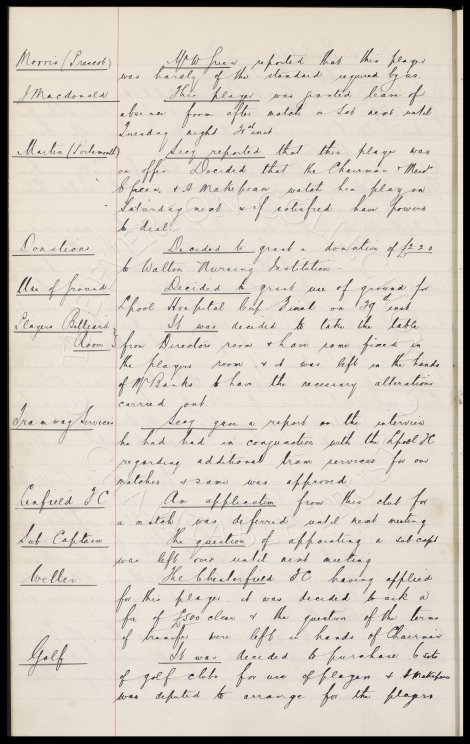 Morris (Prescot) Mr W Green reported that this player
was hardly of the standard required by us.
J Macdonald This player was granted leave of
absence from after match on Sat next until
Tuesday night inst
Martin (Portsmouth) Secy reported that this player was
on offer. Decided that the Chairman & Messrs
Green & H Makepeace watch him play on
Saturday next & if satisfied have powers
to deal.
Donations Decided to grant a donation of £2.2.0
to Walton Nursing Institution.
Use of Ground Decided to grant use of ground for
L'pool Hospital Cup Final on 29th inst
Players Billiard Room It was decided to take the table
from Directors room & have same fixed in
the players room & it was left in the hands
of Mr Banks to have the necessary alterations
carried out.
Tramway Services Secy gave a report on the interview
he had had in conjunction with the Lpool FC
regarding additional tram services for our
matches & same was approved.
Enfield FC An application from this club for
a match was deferred until next meeting
Sub Captain The question of appointing a sub capt
was left over until next meeting
Weller The Chesterfield FC having applied
for this player it was decided to ask a
fee of £500 clear & the question of the terms
of transfer were left in hands of Chairman
Golf It was decided to purchase 6 sets
of golf clubs for use of players & H Makepeace
was deputed to arrange for the players